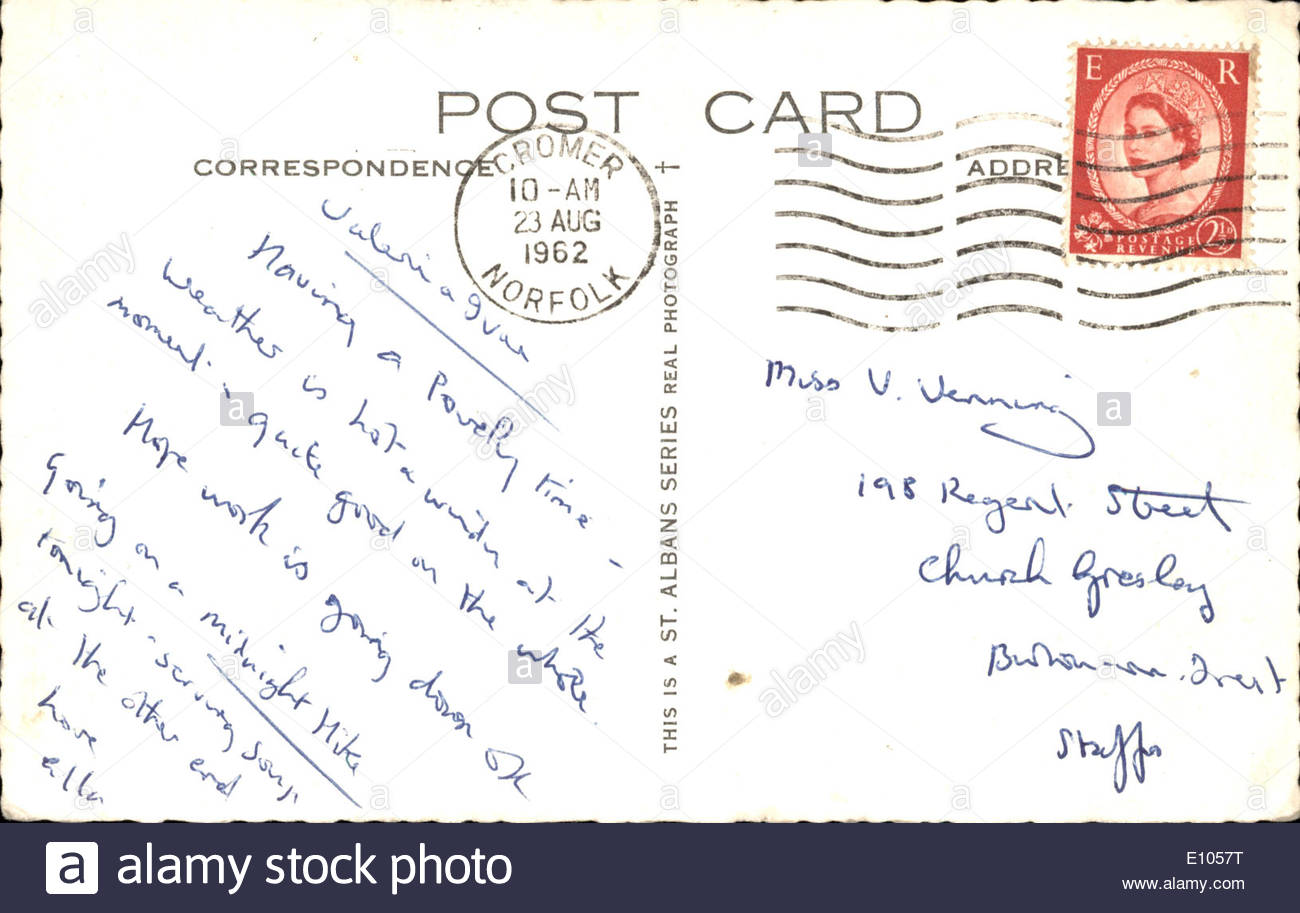 POST CARD
CORRESPONDENCE
ADDRE
CROMER
10-AM
23 AUG
1962
NORFOLK
E R
POSTAGE
REVENUE
2½D
THIS IS A ST. ALBANS SERIES REAL PHOTOGRAPH
Having a time -
weather is hot & windy at the
moment - quite good on the whole.
Hope work is going down OK
Going on a midnight Hike
tonight - serving soup
at the other end
love
ella
Miss V. Venning
198 Regent Street
Church Gresley
Burton-on-Trent
Staffs
alamy stock photo
E1057T
www.alamy.com